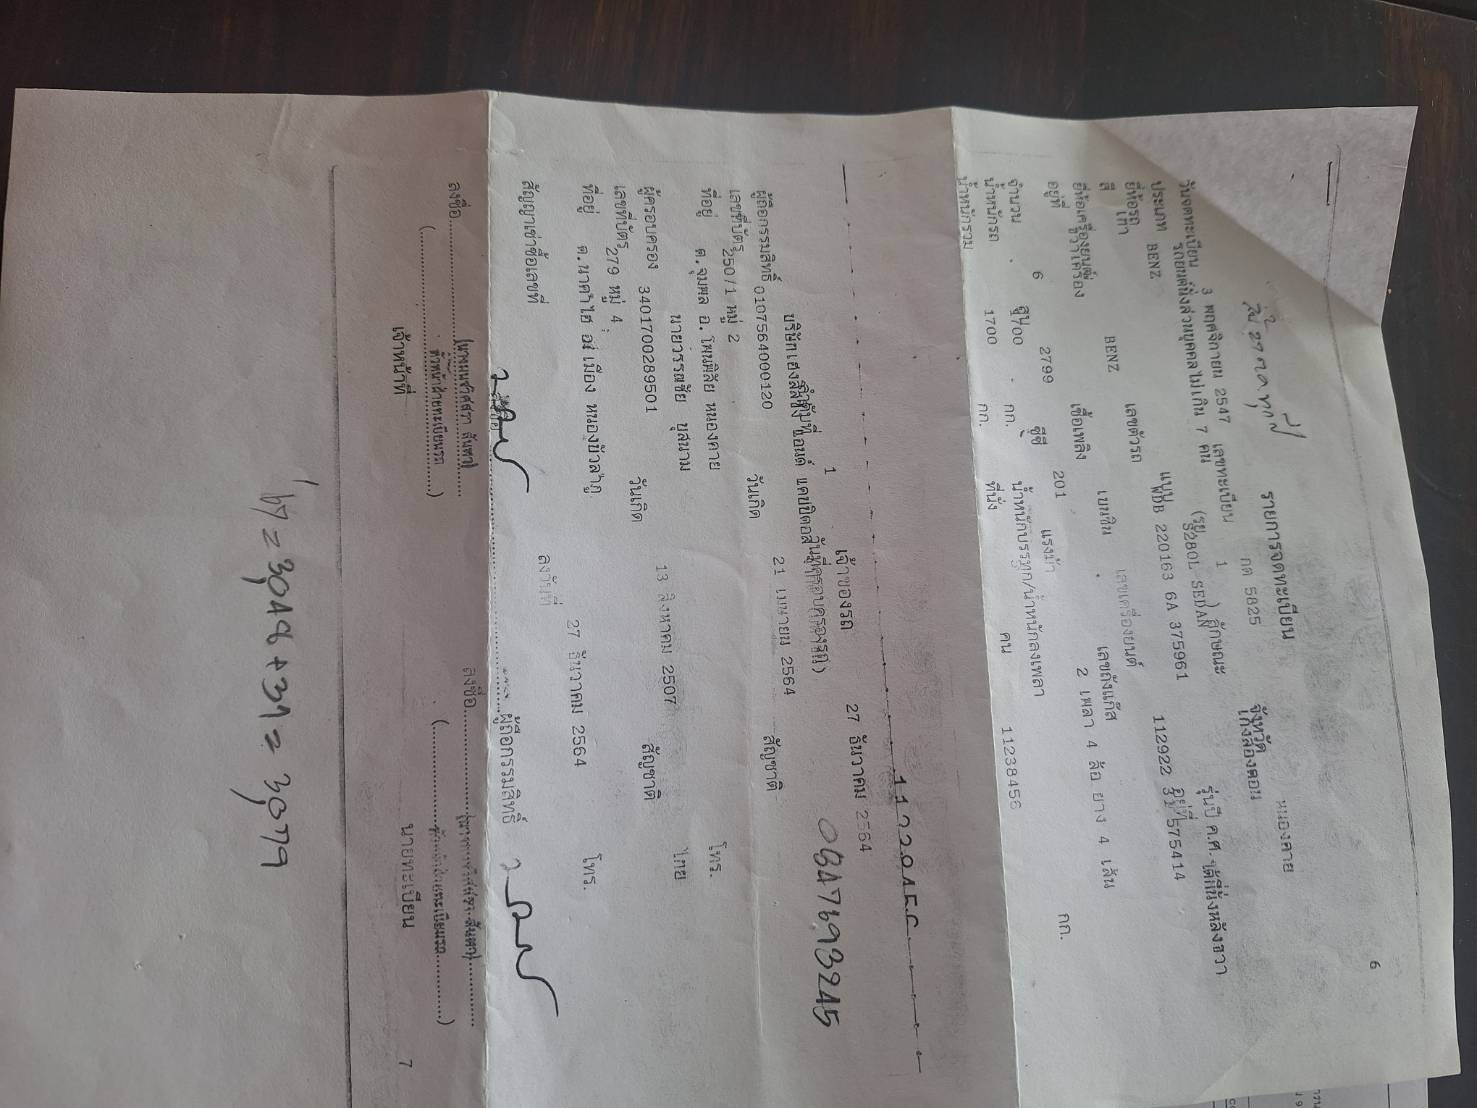 6
รายการจดทะเบียน
วันจดทะเบียน 3 พฤศจิกายน 2547 เลขทะเบียน กต 5825 จังหวัด หนองคาย
ประเภท รถยนต์นั่งส่วนบุคคลไม่เกิน 7 คน (รย. 1 ) ลักษณะ เก๋งสองตอน
ยี่ห้อรถ BENZ แบบ S280L SEDAN รุ่นปี ค.ศ.
สี เทา เลขตัวรถ WDB 220163 6A 375961 อยู่ที่ ใต้ที่นั่งหลังขวา
ยี่ห้อเครื่องยนต์ BENZ เลขเครื่องยนต์ 112922 31 575414
อยู่ที่ เชื้อเพลิง เบนซิน เลขถังแก๊ส
จำนวน 6 สูบ 2799 ซีซี 201 แรงม้า 2 เพลา 4 ล้อ ยาง 4 เส้น
น้ำหนักรถ 1700 กก. น้ำหนักบรรทุก/น้ำหนักลงเพลา กก.
น้ำหนักรวม 1700 กก. ที่นั่ง คน 11238456
เจ้าของรถ
ลำดับที่ 1 วันที่ครอบครองรถ 27 ธันวาคม 2564
ผู้ถือกรรมสิทธิ์ บริษัทเฮงลิสซิ่ง แอนด์ แคปปิตอล
0847693245
เลขที่บัตร 0107564000120 วันเกิด 21 เมษายน 2564 สัญชาติ
ที่อยู่ 250/1 หมู่ 2
ต.จุมพล อ.โพนพิสัย หนองคาย โทร.
ผู้ครอบครอง นายวรรณชัย บุสนาม
เลขที่บัตร 3401700289501 วันเกิด 13 สิงหาคม 2507 สัญชาติ ไทย
ที่อยู่ 279 หมู่ 4
ต.นาคำไฮ อ.เมือง หนองบัวลำภู โทร.
สัญญาเช่าซื้อเลขที่ ลงวันที่ 27 ธันวาคม 2564
ผู้ถือกรรมสิทธิ์
ลงชื่อ ลงชื่อ
หัวหน้าฝ่ายทะเบียนรถ
เจ้าหน้าที่ นายทะเบียน
7
= 3,048 + 31 = 3,079